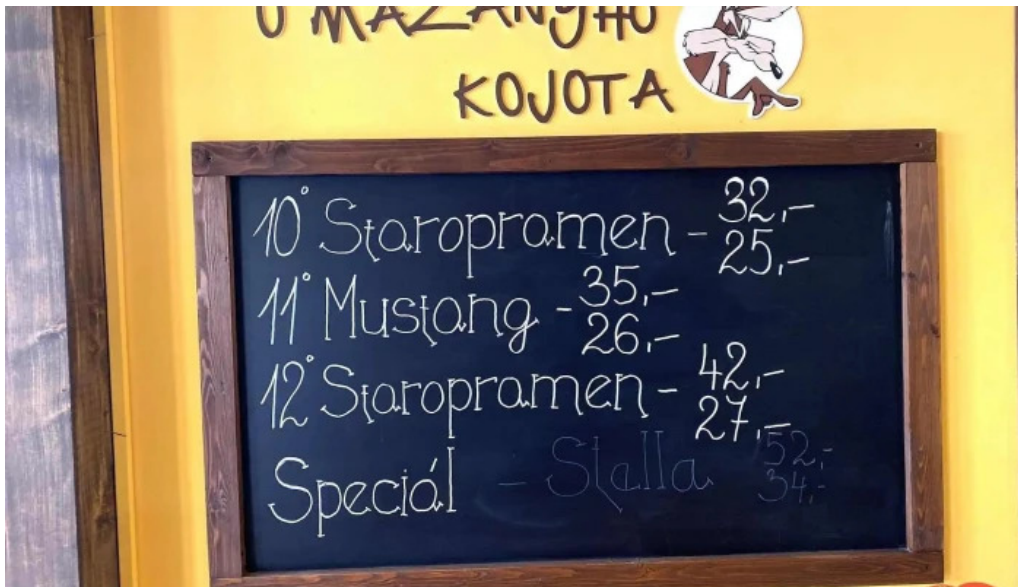 U MAZANÝHO
KOJOTA
10° Staropramen - 32,-
25,-
11° Mustang - 35,-
26,-
12° Staropramen - 42,-
27,-
Speciál - Stella 52,-
34,-